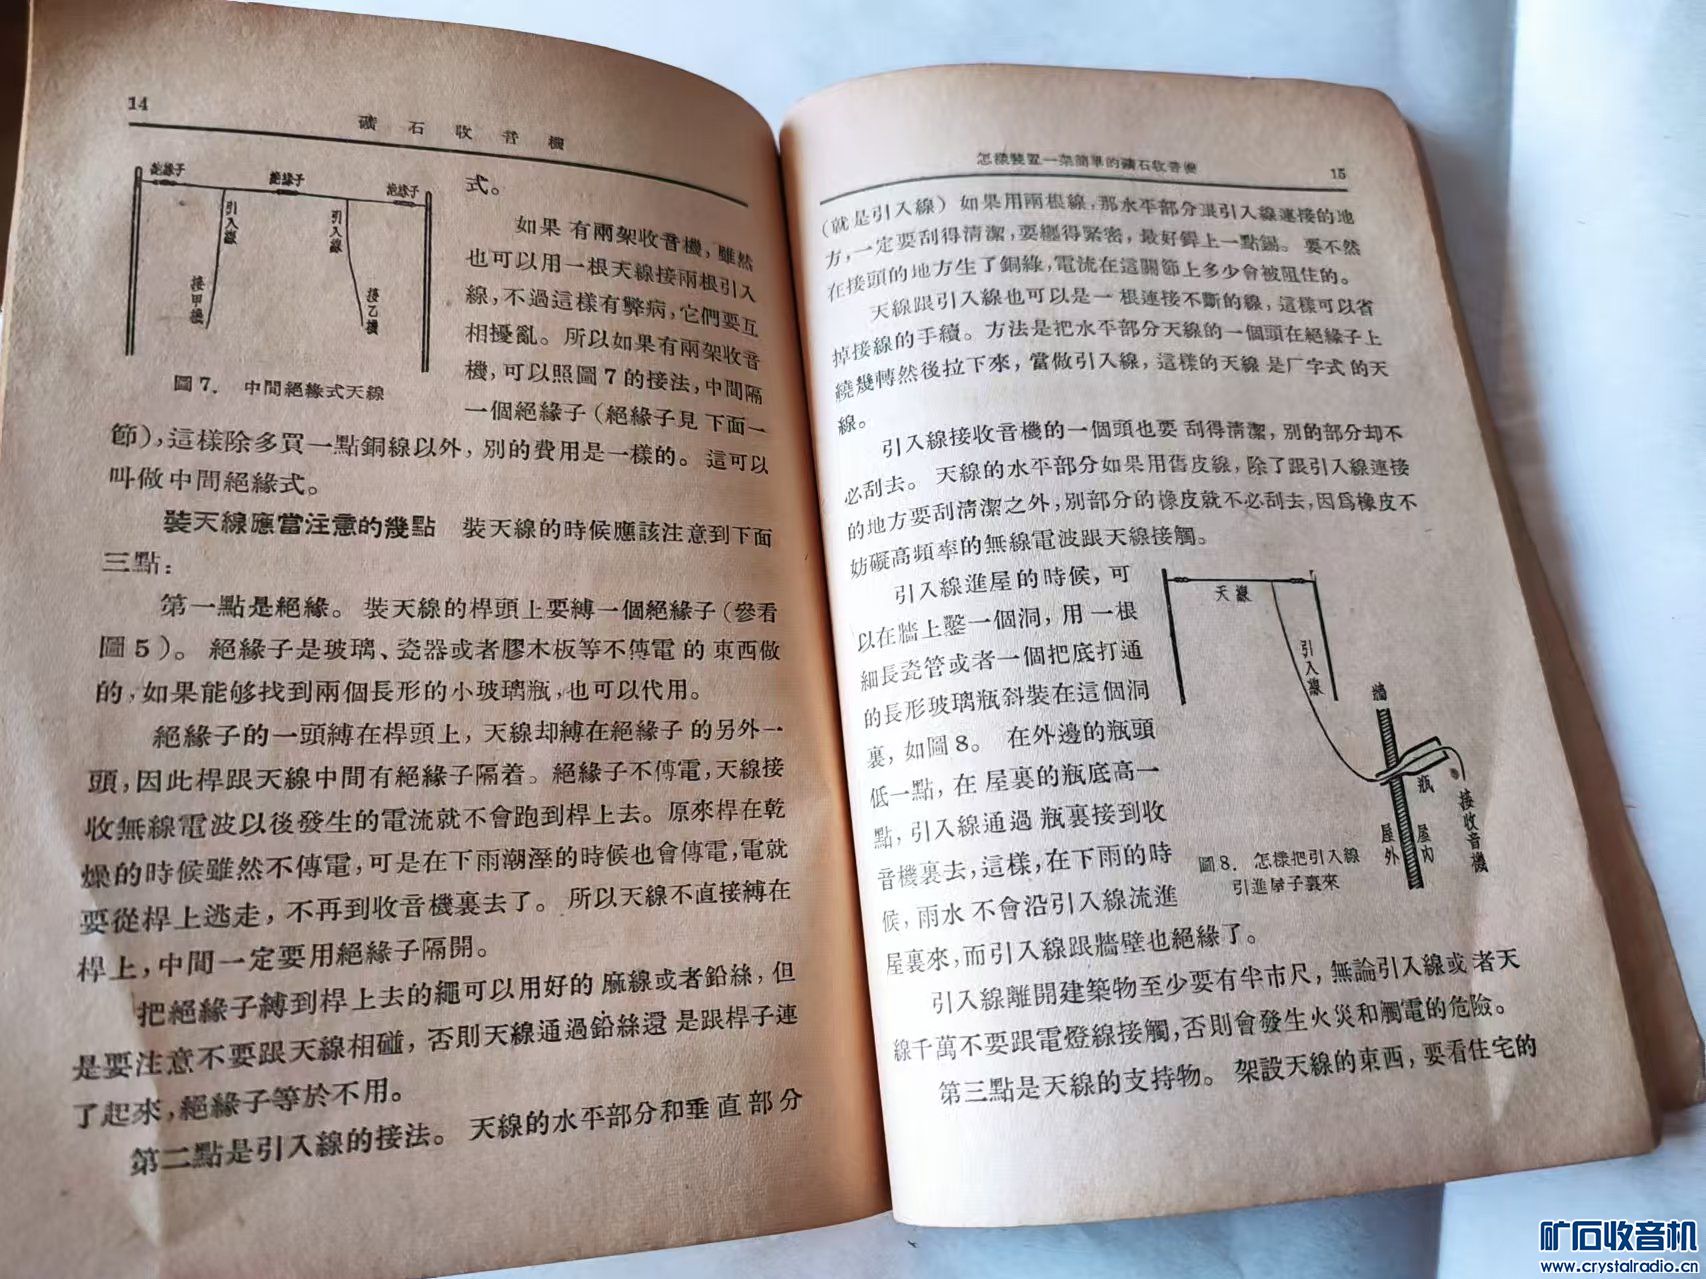 14
礦石收音機
絕緣子
絕緣子
絕緣子
引入線
引入線
接甲機
接乙機
圖7. 中間絕緣式天線
式。
如果有兩架收音機，雖然
也可以用一根天線接兩根引入
線，不過這樣有弊病，它們要互
相擾亂。所以如果有兩架收音
機，可以照圖7的接法，中間隔
一個絕緣子（絕緣子見下面一
節），這樣除多買一點銅線以外，別的費用是一樣的。這可以
叫做中間絕緣式。
裝天線應當注意的幾點 裝天線的時候應該注意到下面
三點：
第一點是絕緣。裝天線的桿頭上要縛一個絕緣子（參看
圖5）。絕緣子是玻璃、瓷器或者膠木板等不傳電的東西做
的，如果能够找到兩個長形的小玻璃瓶，也可以代用。
絕緣子的一頭縛在桿頭上，天線却縛在絕緣子的另外一
頭，因此桿跟天線中間有絕緣子隔着。絕緣子不傳電，天線接
收無線電波以後發生的電流就不會跑到桿上去。原來桿在乾
燥的時候雖然不傳電，可是在下雨潮溼的時候也會傳電，電就
要從桿上逃走，不再到收音機裏去了。所以天線不直接縛在
桿上，中間一定要用絕緣子隔開。
把絕緣子縛到桿上去的繩可以用好的麻線或者鉛絲，但
是要注意不要跟天線相碰，否則天線通過鉛絲還是跟桿子連
了起來，絕緣子等於不用。
第二點是引入線的接法。天線的水平部分和垂直部分
怎樣裝置一架簡單的礦石收音機
15
（就是引入線）如果用兩根線，那水平部分跟引入線連接的地
方，一定要刮得清潔，要纏得緊密，最好銲上一點錫。要不然
在接頭的地方生了銅綠，電流在這關節上多少會被阻住的。
天線跟引入線也可以是一根連接不斷的線，這樣可以省
掉接線的手續。方法是把水平部分天線的一個頭在絕緣子上
繞幾轉然後拉下來，當做引入線，這樣的天線是厂字式的天
線。
引入線接收音機的一個頭也要刮得清潔，別的部分却不
必刮去。天線的水平部分如果用舊皮線，除了跟引入線連接
的地方要刮清潔之外，別部分的橡皮就不必刮去，因爲橡皮不
妨礙高頻率的無線電波跟天線接觸。
引入線進屋的時候，可
以在牆上鑿一個洞，用一根
細長瓷管或者一個把底打通
的長形玻璃瓶斜裝在這個洞
裏，如圖8。在外邊的瓶頭
低一點，在屋裏的瓶底高一
點，引入線通過瓶裏接到收
音機裏去，這樣，在下雨的時
候，雨水不會沿引入線流進
屋裏來，而引入線跟牆壁也絕緣了。
天線
引入線
牆
瓶
接收音機
屋外
屋內
圖8. 怎樣把引入線
引進屋子裏來
引入線離開建築物至少要有半市尺，無論引入線或者天
線千萬不要跟電燈線接觸，否則會發生火災和觸電的危險。
第三點是天線的支持物。架設天線的東西，要看住宅的
矿石收音机
www.crystalradio.cn